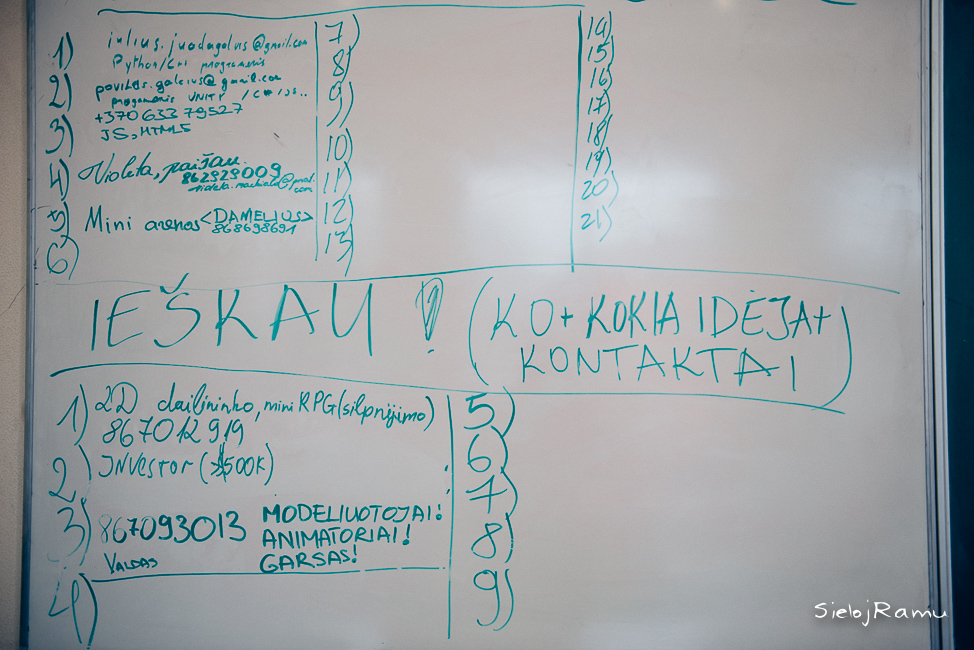 1) julius.juodagalvis@gmail.com
Python/C++ programeris
2) povilas.galcius@gmail.com
programeris UNITY / C# / JS..
3) +370 633 79527
JS, HTML5
4) Violeta, paišau.
862929009
5) Mini arenos <DAMELIUS>
868698691
6)
7)
8)
9)
10)
11)
12)
13)
14)
15)
16)
17)
18)
19)
20)
21)
IEŠKAU! (KO + KOKIA IDĖJA +
KONTAKTAI)
1) 2D dailininko, mini RPG (silpnėjimo)
867012919
2) INvestor ($500K)
3) 867093013 MODELIUOTOJAI!
ANIMATORIAI!
Valdas GARSAS!
4)
5)
6)
7)
8)
9)
SielojRamu